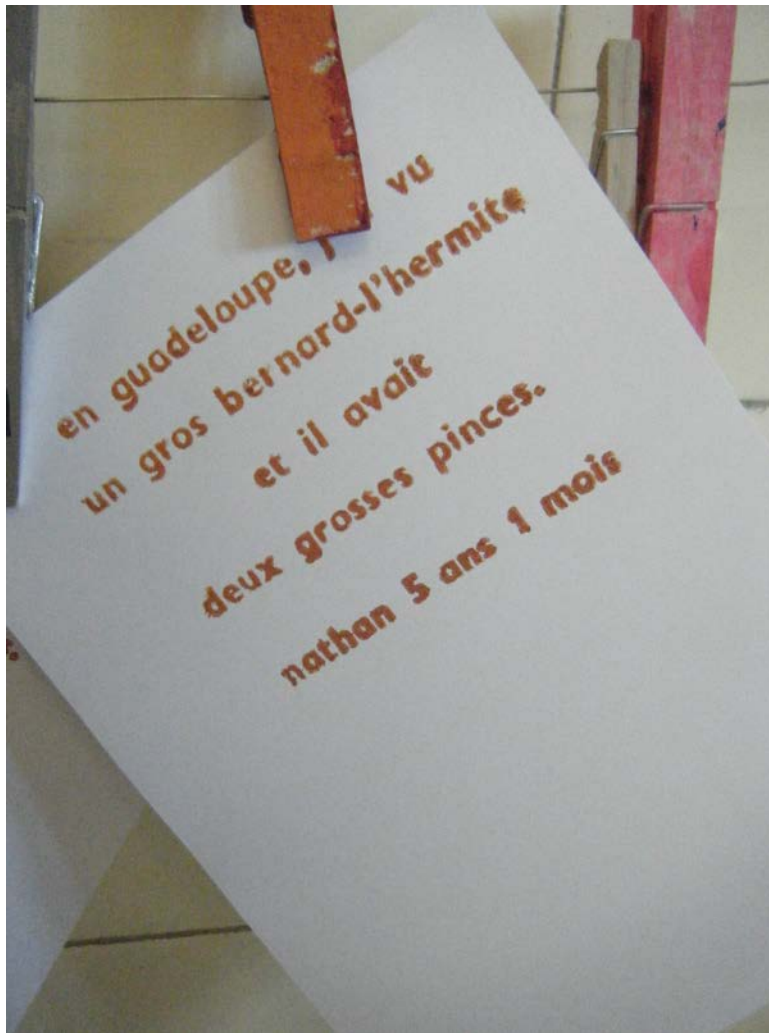 en guadeloupe, vu
un gros bernard-l'hermite
et il avait
deux grosses pinces.
nathan 5 ans 1 mois